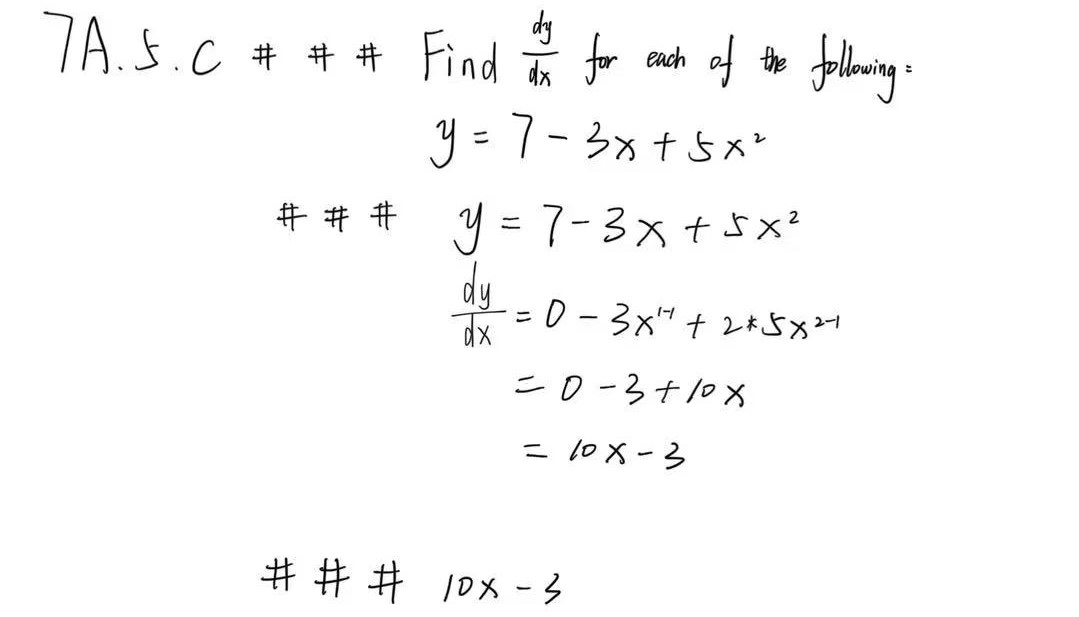 7A.5.C # # # Find dy/dx for each of the following:
y = 7 - 3x + 5x²
# # # y = 7 - 3x + 5x²
dy/dx = 0 - 3x¹⁻¹ + 2*5x²⁻¹
= 0 - 3 + 10x
= 10x - 3
# # # 10x - 3